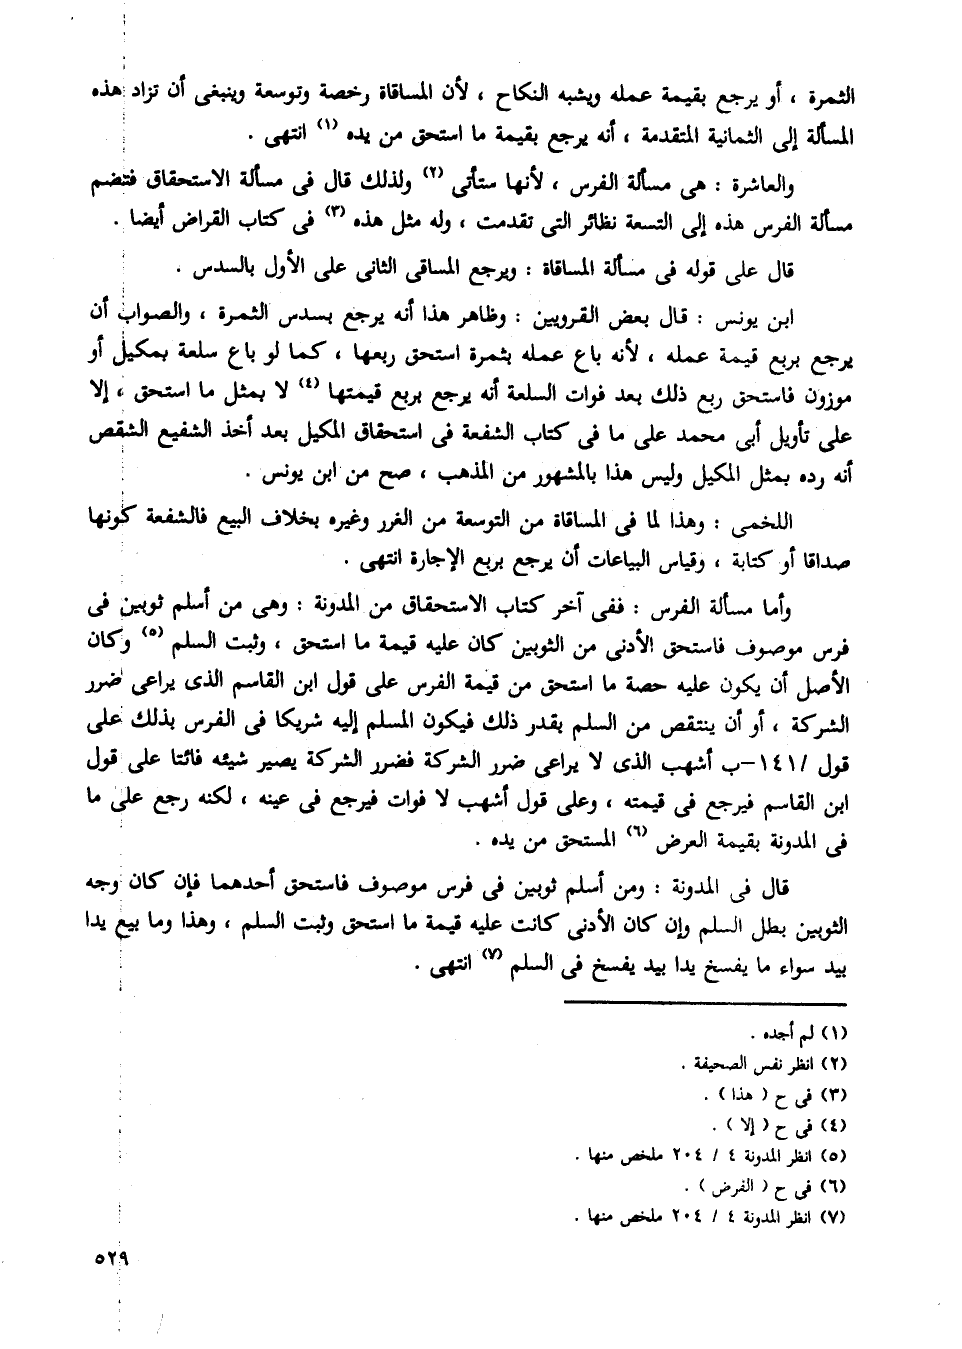 الثمرة ، أو يرجع بقيمة عمله ويشبه النكاح ، لأن المساقاة رخصة وتوسعة وينبغى أن تزاد هذه
المسألة إلى الثمانية المتقدمة ، أنه يرجع بقيمة ما استحق من يده (١) انتهى .
والعاشرة : هى مسألة الفرس ، لأنها ستأتى (٢) ولذلك قال فى مسألة الاستحقاق فتضم
مسألة الفرس هذه إلى التسعة نظائر التى تقدمت ، وله مثل هذه (٣) فى كتاب القراض أيضا .
قال على قوله فى مسألة المساقاة : ويرجع المساقى الثانى على الأول بالسدس .
ابن يونس : قال بعض القرويين : وظاهر هذا أنه يرجع بسدس الثمرة ، والصواب أن
يرجع بربع قيمة عمله ، لأنه باع عمله بثمرة استحق ربعها ، كما لو باع سلعة بمكيل أو
موزون فاستحق ربع ذلك بعد فوات السلعة أنه يرجع بربع قيمتها (٤) لا بمثل ما استحق ، إلا
على تأويل أبى محمد على ما فى كتاب الشفعة فى استحقاق المكيل بعد أخذ الشفيع الشقص
أنه رده بمثل المكيل وليس هذا بالمشهور من المذهب ، صح من ابن يونس .
اللخمى : وهذا لما فى المساقاة من التوسعة من الغرر وغيره بخلاف البيع فالشفعة كونها
صداقا أو كتابة ، وقياس البياعات أن يرجع بربع الإجارة انتهى .
وأما مسألة الفرس : ففى آخر كتاب الاستحقاق من المدونة : وهى من أسلم ثوبين فى
فرس موصوف فاستحق الأدنى من الثوبين كان عليه قيمة ما استحق ، وثبت السلم (٥) وكان
الأصل أن يكون عليه حصة ما استحق من قيمة الفرس على قول ابن القاسم الذى يراعى ضرر
الشركة ، أو أن ينتقص من السلم بقدر ذلك فيكون المسلم إليه شريكا فى الفرس بذلك على
قول /١٤١-ب أشهب الذى لا يراعى ضرر الشركة فضرر الشركة يصير شيئه فائتا على قول
ابن القاسم فيرجع فى قيمته ، وعلى قول أشهب لا فوات فيرجع فى عينه ، لكنه رجع على ما
فى المدونة بقيمة العرض (٦) المستحق من يده .
قال فى المدونة : ومن أسلم ثوبين فى فرس موصوف فاستحق أحدهما فإن كان وجه
الثوبين بطل السلم وإن كان الأدنى كانت عليه قيمة ما استحق وثبت السلم ، وهذا وما بيع يدا
بيد سواء ما يفسخ يدا بيد يفسخ فى السلم (٧) انتهى .
(١) لم أجده .
(٢) انظر نفس الصحيفة .
(٣) فى ح ( هذا ) .
(٤) فى ح ( إلا ) .
(٥) انظر المدونة ٤ / ٢٠٤ ملخص منها .
(٦) فى ح ( الفرض ) .
(٧) انظر المدونة ٤ / ٢٠٤ ملخص منها .
٥٢٩